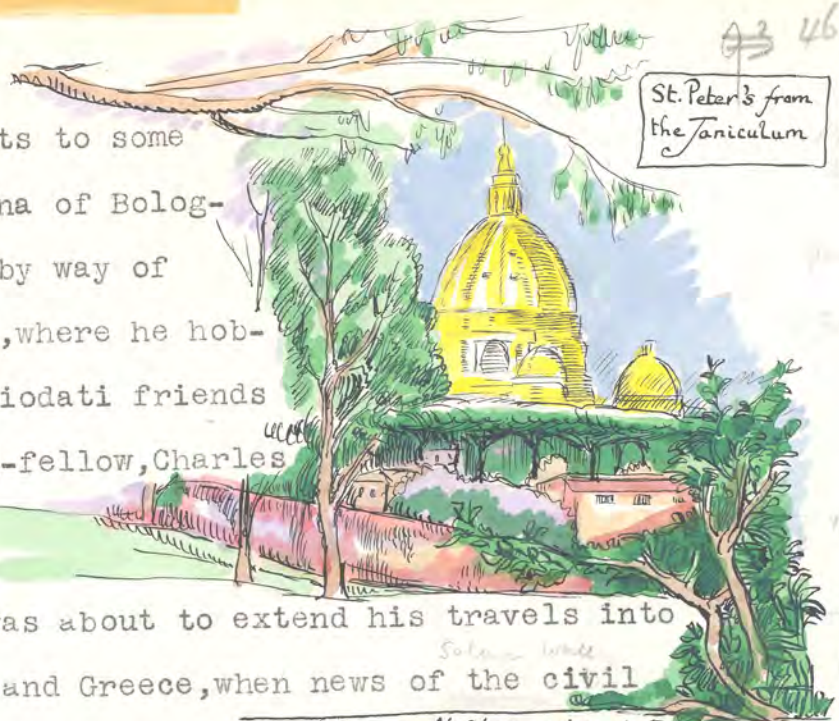 46
St. Peter's from
the Janiculum
ts to some
na of Bolog-
by way of
,where he hob-
iodati friends
-fellow,Charles
as about to extend his travels into
and Greece,when news of the civil